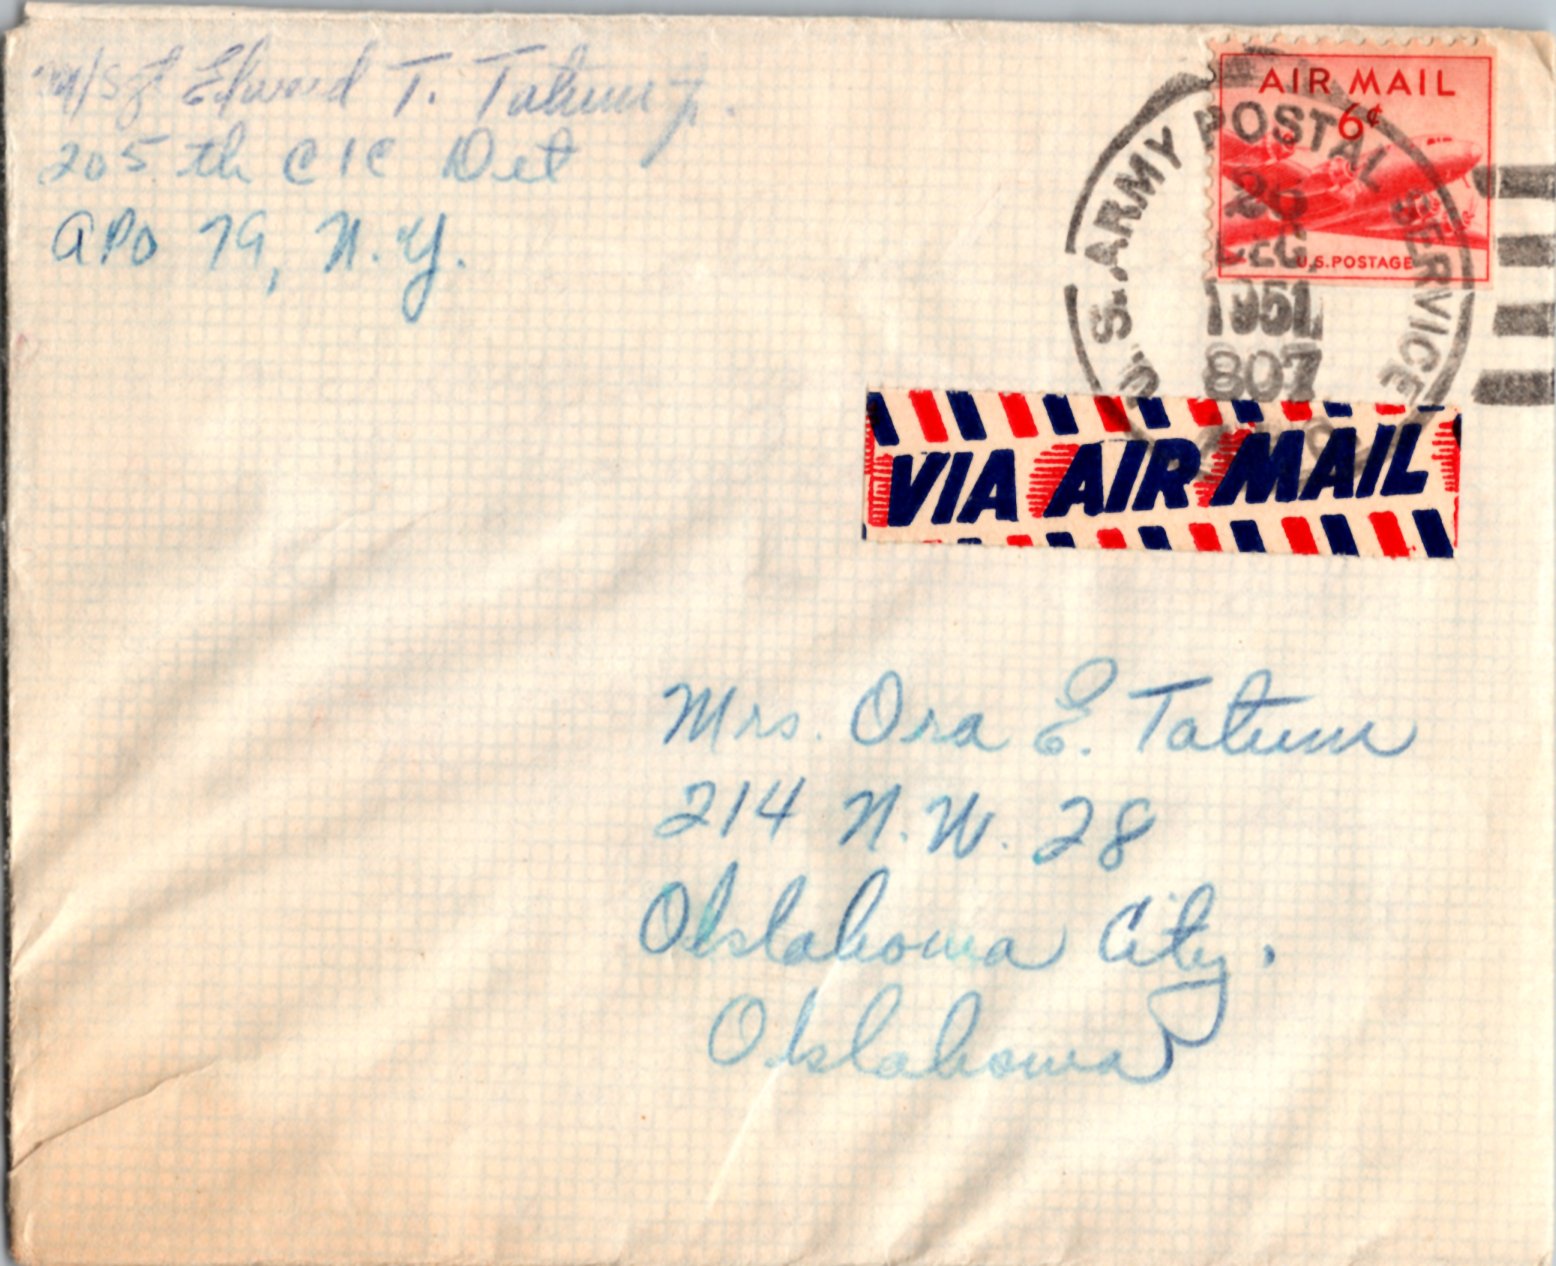 M/Sgt Edward T. Tatum Jr.
205th CIC Det
APO 79, N.Y.
AIR MAIL
6¢
U.S. POSTAGE
U.S. ARMY POSTAL SERVICE
20
DEC.
1951
807
VIA AIR MAIL
Mrs. Ora E. Tatum
214 N.W. 28
Oklahoma City.
Oklahoma